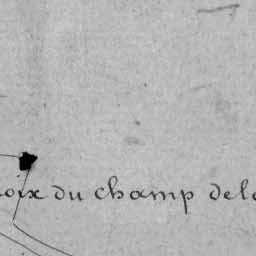 oix du champ dele